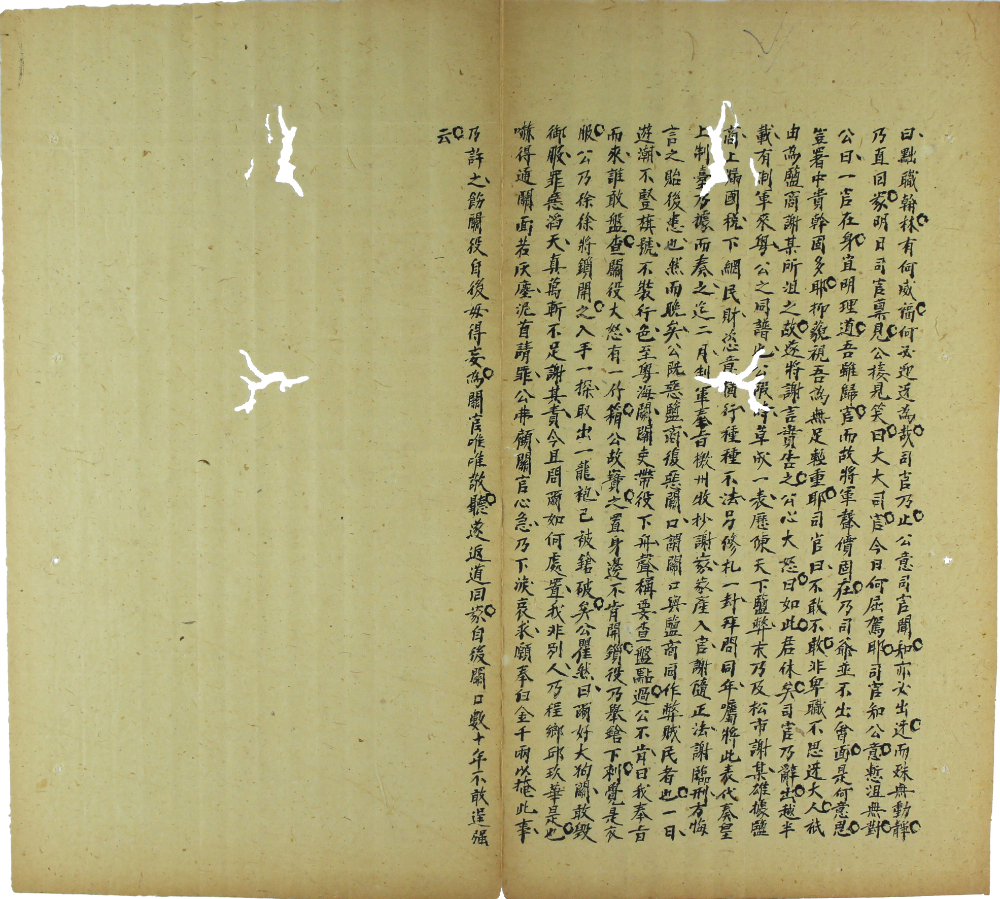 曰點職翰林有何威福何必迎送為哉司官乃止公意司官聞知亦必出迓而殊無動靜
乃直回家明日司官稟見公接見笑曰大大司官今日何屈駕耶司官知公意慙沮無對
公曰一官在身宜明理道吾雖歸官而故將軍聲價固在乃司爺並不出會面是何意思
豈署中貴幹固多耶抑藐視吾為無足輕重耶司官曰不敢不敢非卑職不思迓大人秪
由為鹽商謝某所沮之故遂將謝言貴告之公心大怒曰如此君休矣司官乃辭出越半
載有制軍來粤公之同譜也公暇時草成一表歷陳天下鹽弊末乃及松市謝某雄據鹽
商上漏國稅下網民財恣意橫行種種不法另修札一封拜問同年囑將此表代奏皇
上制臺乃據而奏之迄二月制軍奉旨檄州牧抄謝家家產入官謝隨正法謝臨刑方悔
言之貽後患也然而晚矣公既惡鹽商復惡關口謂關口與鹽商同作弊賊民者也一日
遊潮不豎旗號不裝行色至粤海關關吏帶役下舟聲稱要查盤點過公不肯曰我奉旨
而來誰敢盤查關役大怒有一竹箱公故寶之置身邊不肯開鎖役乃舉鎗下刺覺是衣
服公乃徐徐將鎖開之入手一探取出一龍袍已被鎗破矣公瞿然曰爾好大狗關敢毀
御服罪惡滔天真萬斬不足謝其責今且問爾如何處置我非別人乃程鄉邱玖華是也
嚇得通關面若灰塵泥首請罪公弗顧關官心急乃下淚哀求願奉白金千兩以掩此事
乃許之飭關役自後毋得妄為關官唯唯敬聽遂返道回家自後關口數十年不敢逞强
云